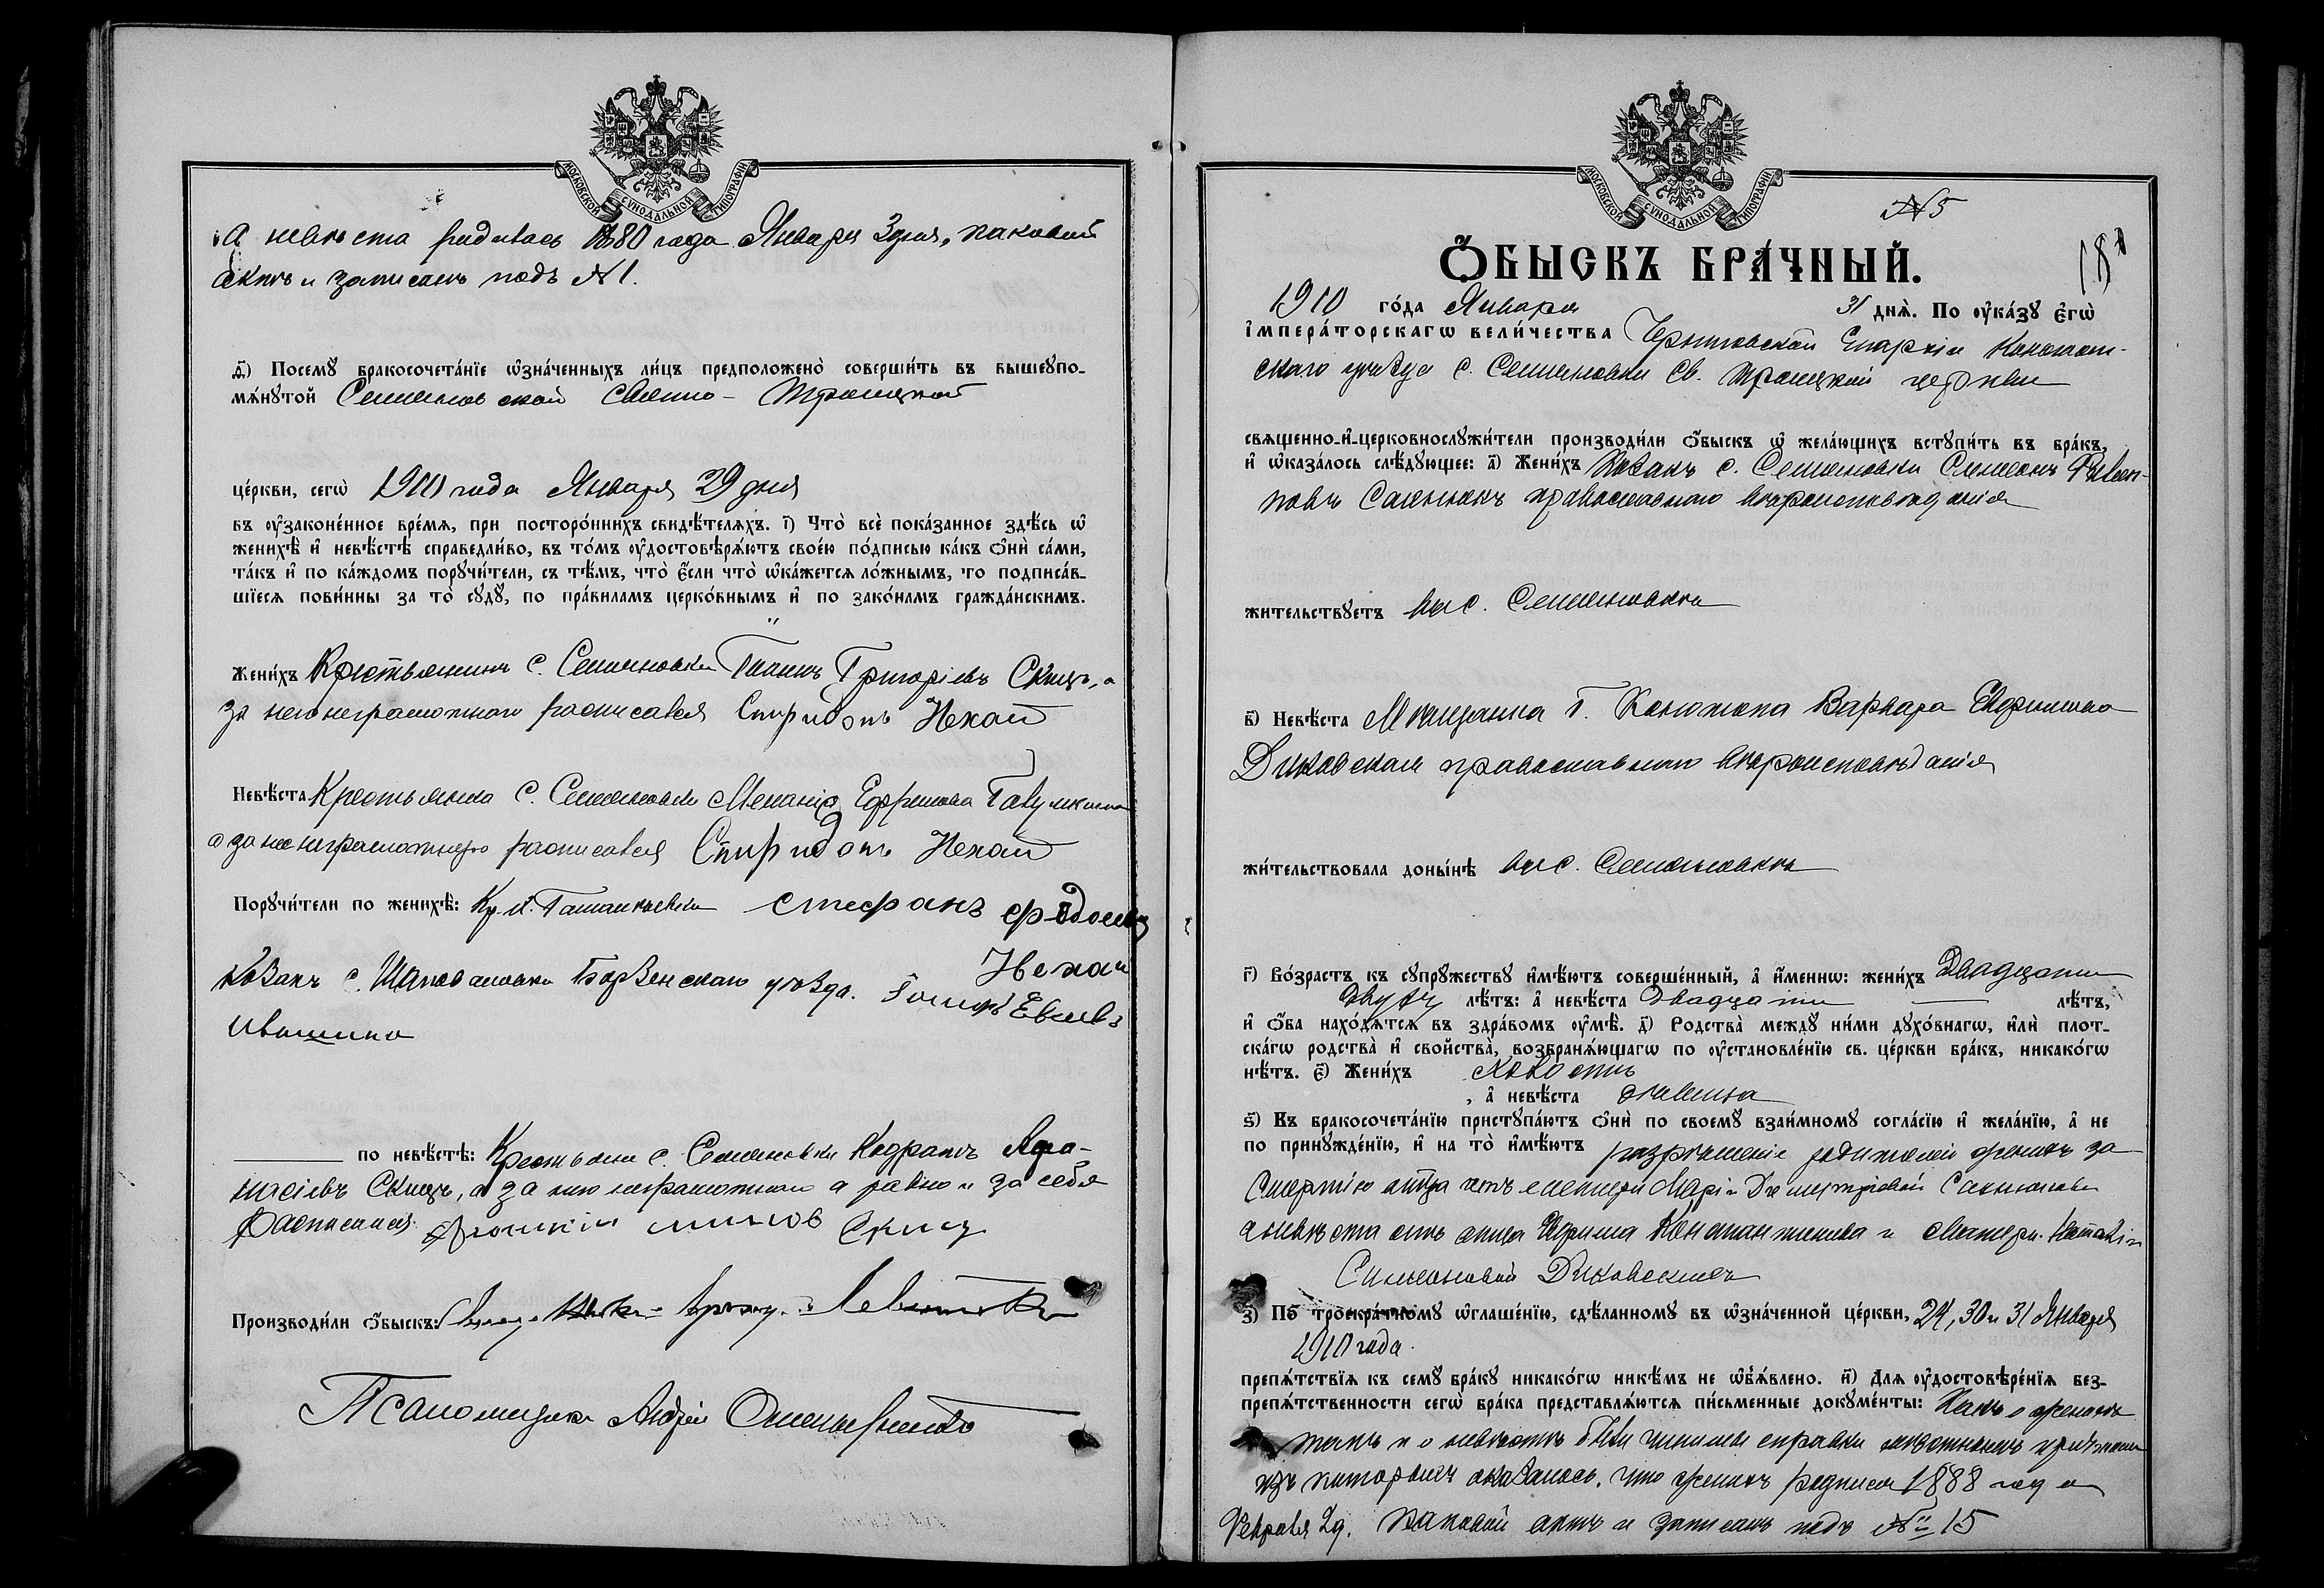 МОСКОВСКОЙ СѴНОДАЛЬНОЙ ТИПОГРАФІИ
а невѣста родилась 1880 года Января 3 дня, каковой
актъ и записанъ подъ № 1.
д҃і) Посемꙋ бракосочета́нїе ѡ҆зна́ченныхъ ли́цъ предположено̀ соверши́ть въ вышеꙋпо-
мѧ́нꙋтой Семеновской Свято-Троицкой
це́ркви, сегѡ̀ 1910 года Января 29 дня
въ ᲂу҆зако́ненное вре́мѧ, при посторо́ннихъ свидѣ́телѧхъ. і҃) Что̀ всѐ пока́занное здѣ́сь ѡ҆
женихѣ̀ и҆ невѣ́стѣ справедли́во, въ то́мъ ᲂу҆достовѣрѧ́ютъ свое́ю по́дписью ка́къ ѻ҆нѝ са́ми,
та́къ и҆ по ка́ждомъ порꙋчи́тели, съ тѣ́мъ, что̀ є҆́сли что̀ ѡ҆ка́жетсѧ ло́жнымъ, то подписа́в-
шїесѧ пови́нны за то̀ сꙋдꙋ̀, по пра́виламъ церко́внымъ и҆ по зако́намъ гражда́нскимъ.
Жени́хъ Крестьянинъ с. Семеновки Григоріевъ Скицъ, а
за него неграмотнаго росписался Спиридонъ Нехай
Невѣ́ста Крестьянка с. Семеновки Меланія Ефремова
а за нее неграмотную росписался Спиридонъ Нехай
Порꙋчи́тели по женихѣ̀: Кр. Стефанъ
Козакъ с. Шаповаловки Борзенскаго уѣзда. Нехай
Ивашина
по невѣ́стѣ: Крестьяне с. Семеновки Кодратъ Афа-
насіевъ Скицъ, а за него неграмотнаго а равно и за себя
росписался Скиц
Производи́ли ѻ҆́быскъ:
Псаломщикъ Андрей
МОСКОВСКОЙ СѴНОДАЛЬНОЙ ТИПОГРАФІИ
№ 5
Ѻ҆́БЫСКЪ БРА́ЧНЫЙ.
1910 го́да Января 31 днѧ̀. По ᲂу҆ка́зꙋ є҆гѡ̀
і҆мпера́торскагѡ вели́чества Черниговской Епархіи Конотоп-
скаго уѣзда с. Семеновки Св. Троицкой церкви
свѧщенно-и҆-церковнослꙋжи́тели производи́ли ѻ҆́быскъ ѡ҆ жела́ющихъ встꙋпи́ть въ бра́къ,
и҆ ѡ҆каза́лось слѣ́дꙋющее: а҃) Жени́хъ Козакъ с. Семеновки Симеонъ Филип-
повъ православнаго вѣроисповѣданія
жи́тельствꙋетъ въ с. Семеновкѣ
в҃) Невѣ́ста Мѣщанка г. Конотопа Варвара Ефимова
Диковская православнаго вѣроисповѣданія
жи́тельствовала доны́нѣ въ с. Семеновкѣ
г҃) Во́зрастъ къ сꙋпрꙋ́жествꙋ и҆мѣ́ютъ соверше́нный, а҆ и҆́меннѡ: жени́хъ Двадцати
двухъ лѣ́тъ: а҆ невѣ́ста двадцати лѣ́тъ,
и҆ ѻ҆́ба нахо́дѧтсѧ въ здра́вомъ ᲂу҆мѣ̀. д҃) Родства̀ междꙋ̀ ни́ми дꙋхо́внагѡ, и҆лѝ плот-
ска́гѡ родства̀ и҆ сво́йства, возбранѧ́ющагѡ по ᲂу҆становле́нїю св. це́ркви бра́къ, никако́гѡ
нѣ́тъ. є҃) Жени́хъ Холостъ
, а҆ невѣ́ста дѣвица
ѕ҃) Къ бракосочета́нїю пристꙋпа́ютъ ѻ҆нѝ по своемꙋ̀ взаи́мномꙋ согла́сїю и҆ жела́нїю, а҆ не
по принꙋжде́нїю, и҆ на то̀ и҆мѣ́ютъ разрѣшеніе родителей женихъ за
смертію отца отъ матери Маріи Димитріевой
а невѣста отъ отца Ефима Константинова и матери Наталіи
Симеоновой Диковскихъ
з҃) По троекра́тномꙋ ѡ҆глаше́нїю, сдѣ́ланномꙋ въ ѡ҆зна́ченной це́ркви, 24, 30 и 31 Января
1910 года.
препѧ́тствїѧ къ семꙋ̀ бра́кꙋ никако́гѡ никѣ́мъ не ѡ҆б̾ѧ́влено. и҃) Длѧ ᲂу҆достовѣре́нїѧ без-
препѧ́тственности сегѡ̀ бра́ка представлѧ́ютсѧ пи́сьменные докꙋме́нты: Какъ о женихѣ
такъ и о невѣстѣ были чинимы справки мѣстнымъ причтомъ
изъ которыхъ оказалось, что женихъ родился 1888 года
Февраля 2 д. каковой актъ и записанъ подъ № 15